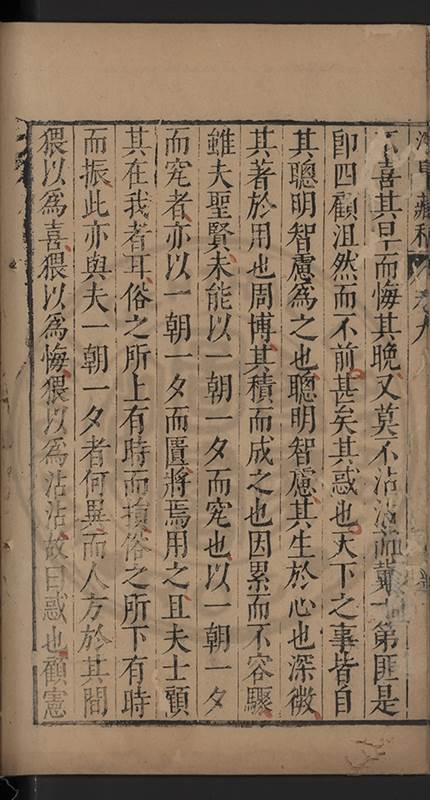 不喜其早而悔其晚又莫不沾沾而冀一第匪是
卽四顧沮然而不前甚矣其惑也天下之事皆自
其聰明智慮爲之也聰明智慮其生於心也深微
其著於用也周博其積而成之也因累而不容驟
雖夫聖賢未能以一朝一夕而究也以一朝一夕
而究者亦以一朝一夕而匱將焉用之且夫士顧
其在我者耳俗之所上有時而損俗之所下有時
而振此亦與夫一朝一夕者何異而人方於其間
猥以爲喜猥以爲悔猥以爲沾沾故曰惑也顧憲